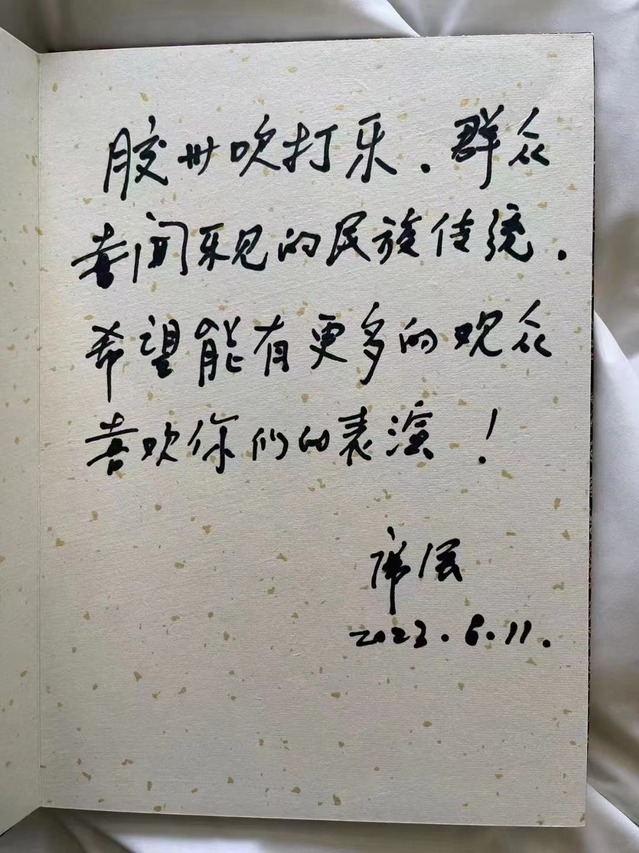 胶州吹打乐．群众
喜闻乐见的民族传统．
希望能有更多的观众
喜欢你们的表演！
席强
2023.6.11.